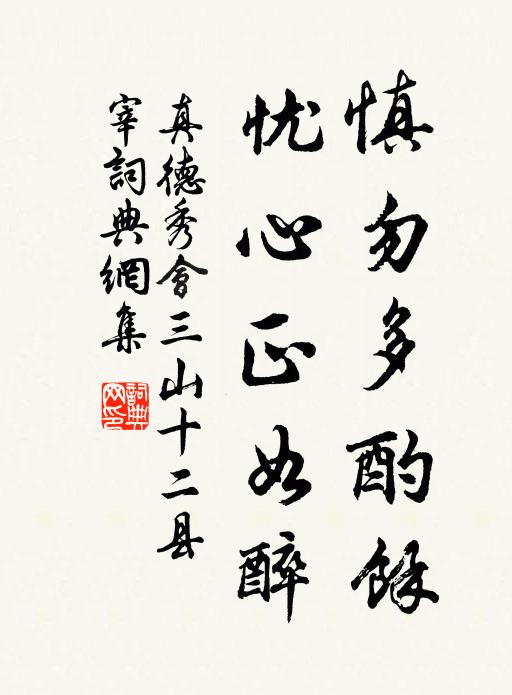 慎勿多酌餘
忧心正如醉
真德秀會三山十二县
宰詞典網集
詞典
网印